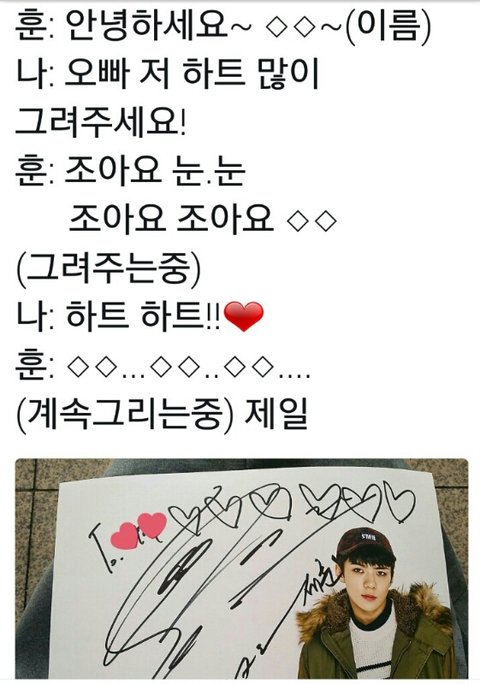 훈: 안녕하세요~ ◇◇~(이름)
나: 오빠 저 하트 많이
그려주세요!
훈: 조아요 눈.눈
조아요 조아요 ◇◇
(그려주는중)
나: 하트 하트!!❤
훈: ◇◇...◇◇..◇◇....
(계속그리는중) 제일
To.
세훈